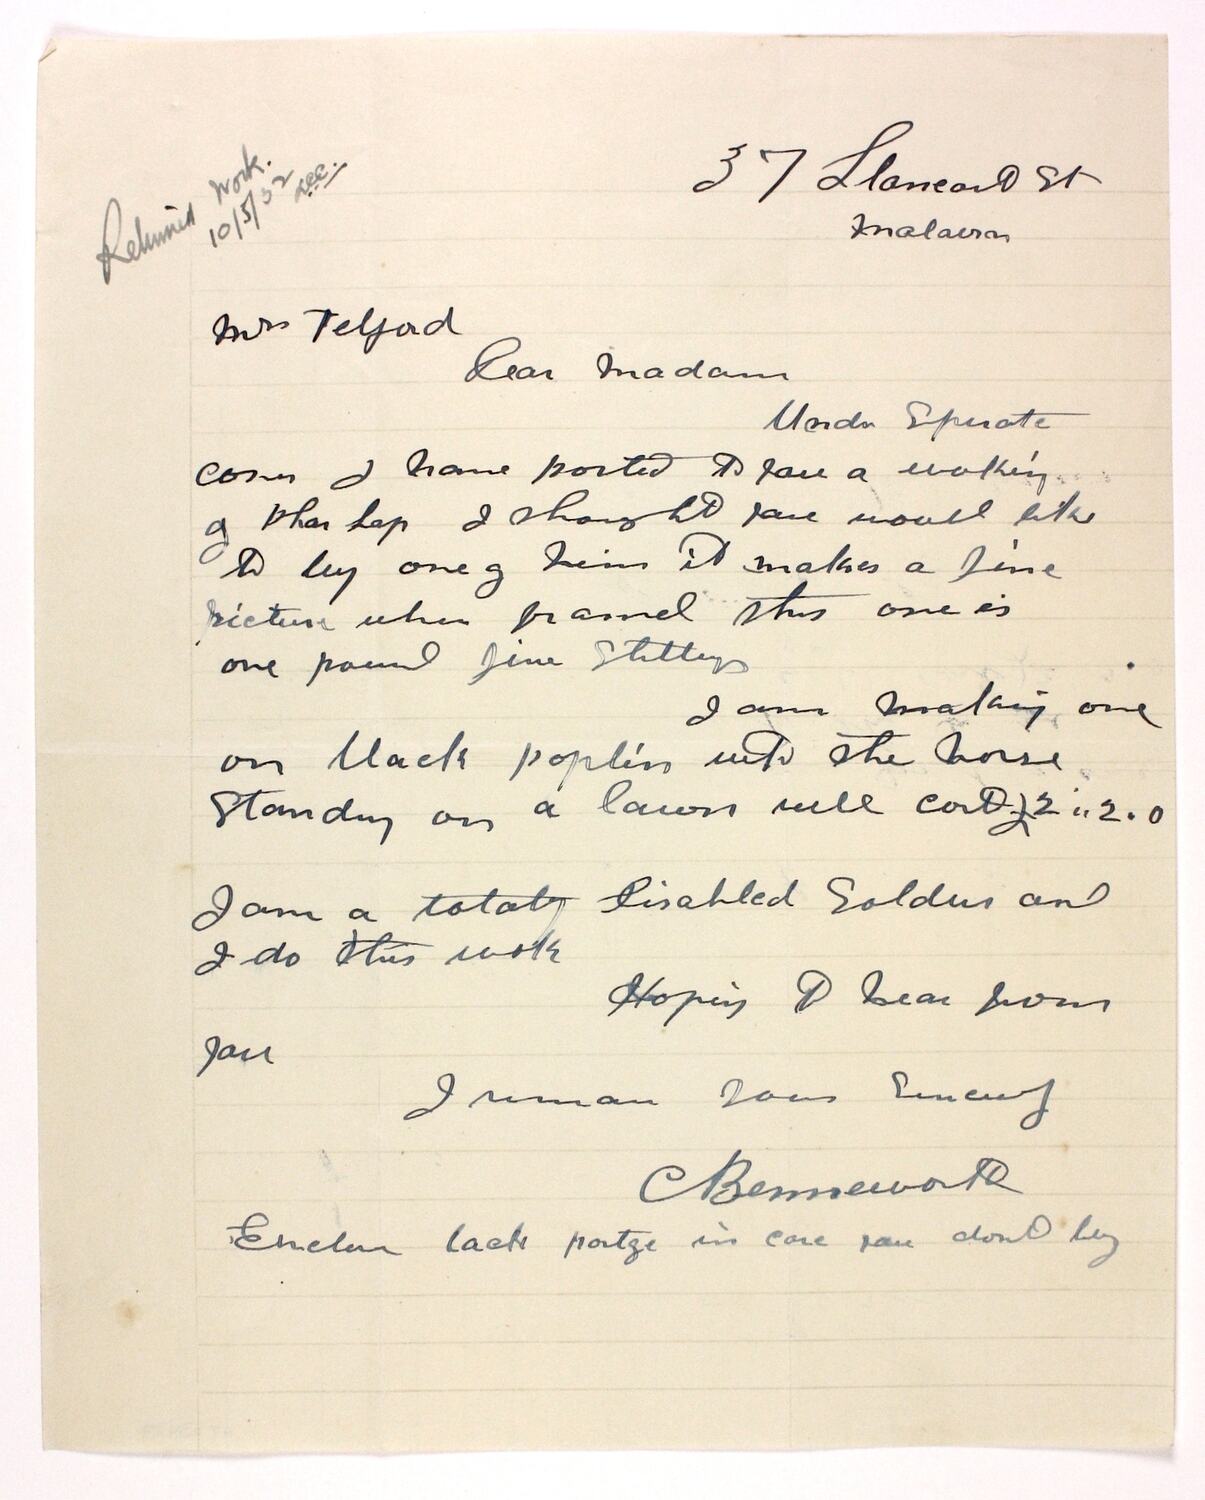 Returned work.
10/5/32
37 Llaneast St
Malvern
Mrs Telford
Dear Madam
Under Seperate
cover I have posted to you a working
of Phar Lap I thought you would like
to buy one of him it makes a fine
picture when framed this one is
one pound five Shillings
I am making one
on black poplin with the horse
Standing on a lawn will cost £2"2.0
I am a totaly Disabled Soldier and
I do this work
Hoping to hear from
you
I remain Yours Sincerely
C Benneworth
Enclose back postge in case you dont buy